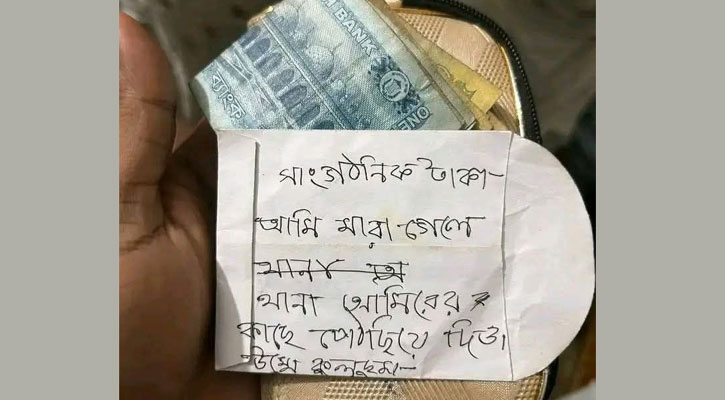 BANK
সাংগঠনিক টাকা-
আমি মারা গেলে
থানা আমিরের
কাছে পৌছিয়ে দিও
উম্মে কুলছুম-